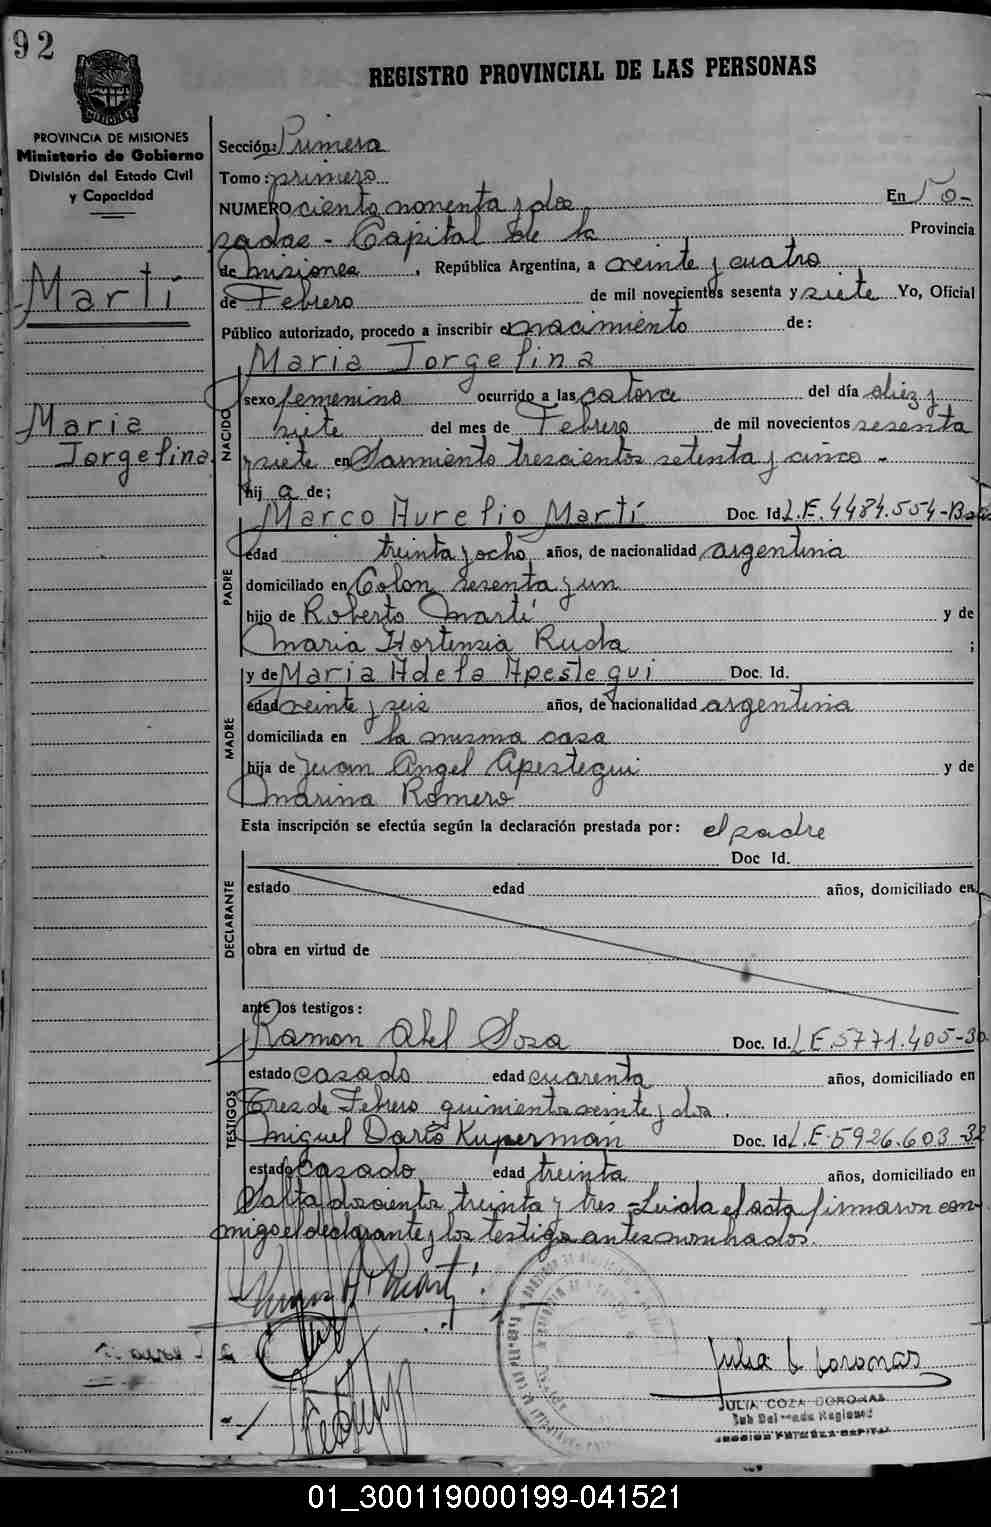 92
REGISTRO PROVINCIAL DE LAS PERSONAS
PROVINCIA DE MISIONES
Ministerio de Gobierno
División del Estado Civil
y Capacidad
Martí
Maria
Jorgelina
Sección: Primera
Tomo: primero
NUMERO ciento noventa y dos En Po-
sadas - Capital de la Provincia
de Misiones, República Argentina, a veinte y cuatro
de Febrero de mil novecientos sesenta y siete Yo, Oficial
Público autorizado, procedo a inscribir el nacimiento de:
Maria Jorgelina
NACIDO
sexo femenino ocurrido a las catorce del día diez y
siete del mes de Febrero de mil novecientos sesenta
y siete en Sarmiento trescientos setenta y cinco -
hij a de;
Marco Aurelio Martí Doc. Id. L.E. 4484.554-
PADRE
edad treinta y ocho años, de nacionalidad argentina
domiciliado en Colon sesenta y un
hijo de Roberto Martí y de
Maria Hortensia Ruda ;
y de Maria Adela Apestegui Doc. Id.
MADRE
edad veinte y seis años, de nacionalidad argentina
domiciliada en la misma casa
hija de Juan Angel Apestegui y de
Marina Romero
Esta inscripción se efectúa según la declaración prestada por: el padre
Doc Id.
DECLARANTE
estado edad años, domiciliado en
obra en virtud de
ante los testigos:
Ramon Abel Sosa Doc. Id. L.E. 5771.405-
TESTIGOS
estado casado edad cuarenta años, domiciliado en
Tres de Febrero quinientos veinte y dos.
Miguel Kuperman Doc. Id. L.E. 5926.603-32
estado casado edad treinta años, domiciliado en
Salta doscientos treinta y tres - Leida el acta firmaron con-
migo el declarante y los testigos antes nombrados.
Julia C. Coronas
JULIA COZA CORONAS
Sub Delegada Regional
SECCION PRIMERA CAPITAL
01_300119000199-041521